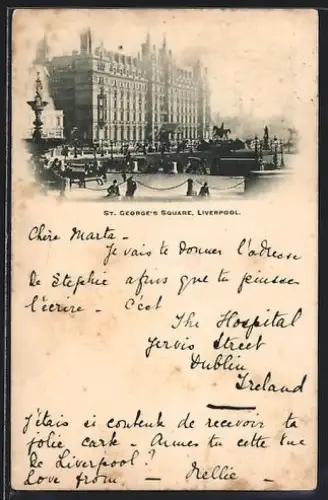 ST. GEORGE'S SQUARE, LIVERPOOL.
Chère Marta -
Je vais te donner l'adresse
de Stephie afins que tu puisses
l'écrire - C'est
The Hospital
Jervis Street
Dublin
Ireland
J'étais si contente de recevoir ta
jolie cark - Aimes tu cette vue
de Liverpool?
Love from - Nellie -